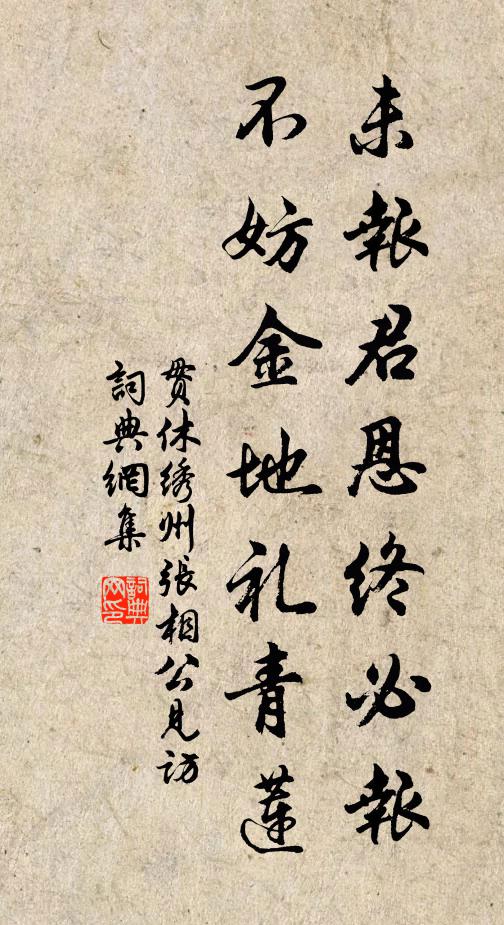 未報君恩終必報
不妨金地礼青蓮
貫休綉州張相公見訪
詞典網集
詞典
网印